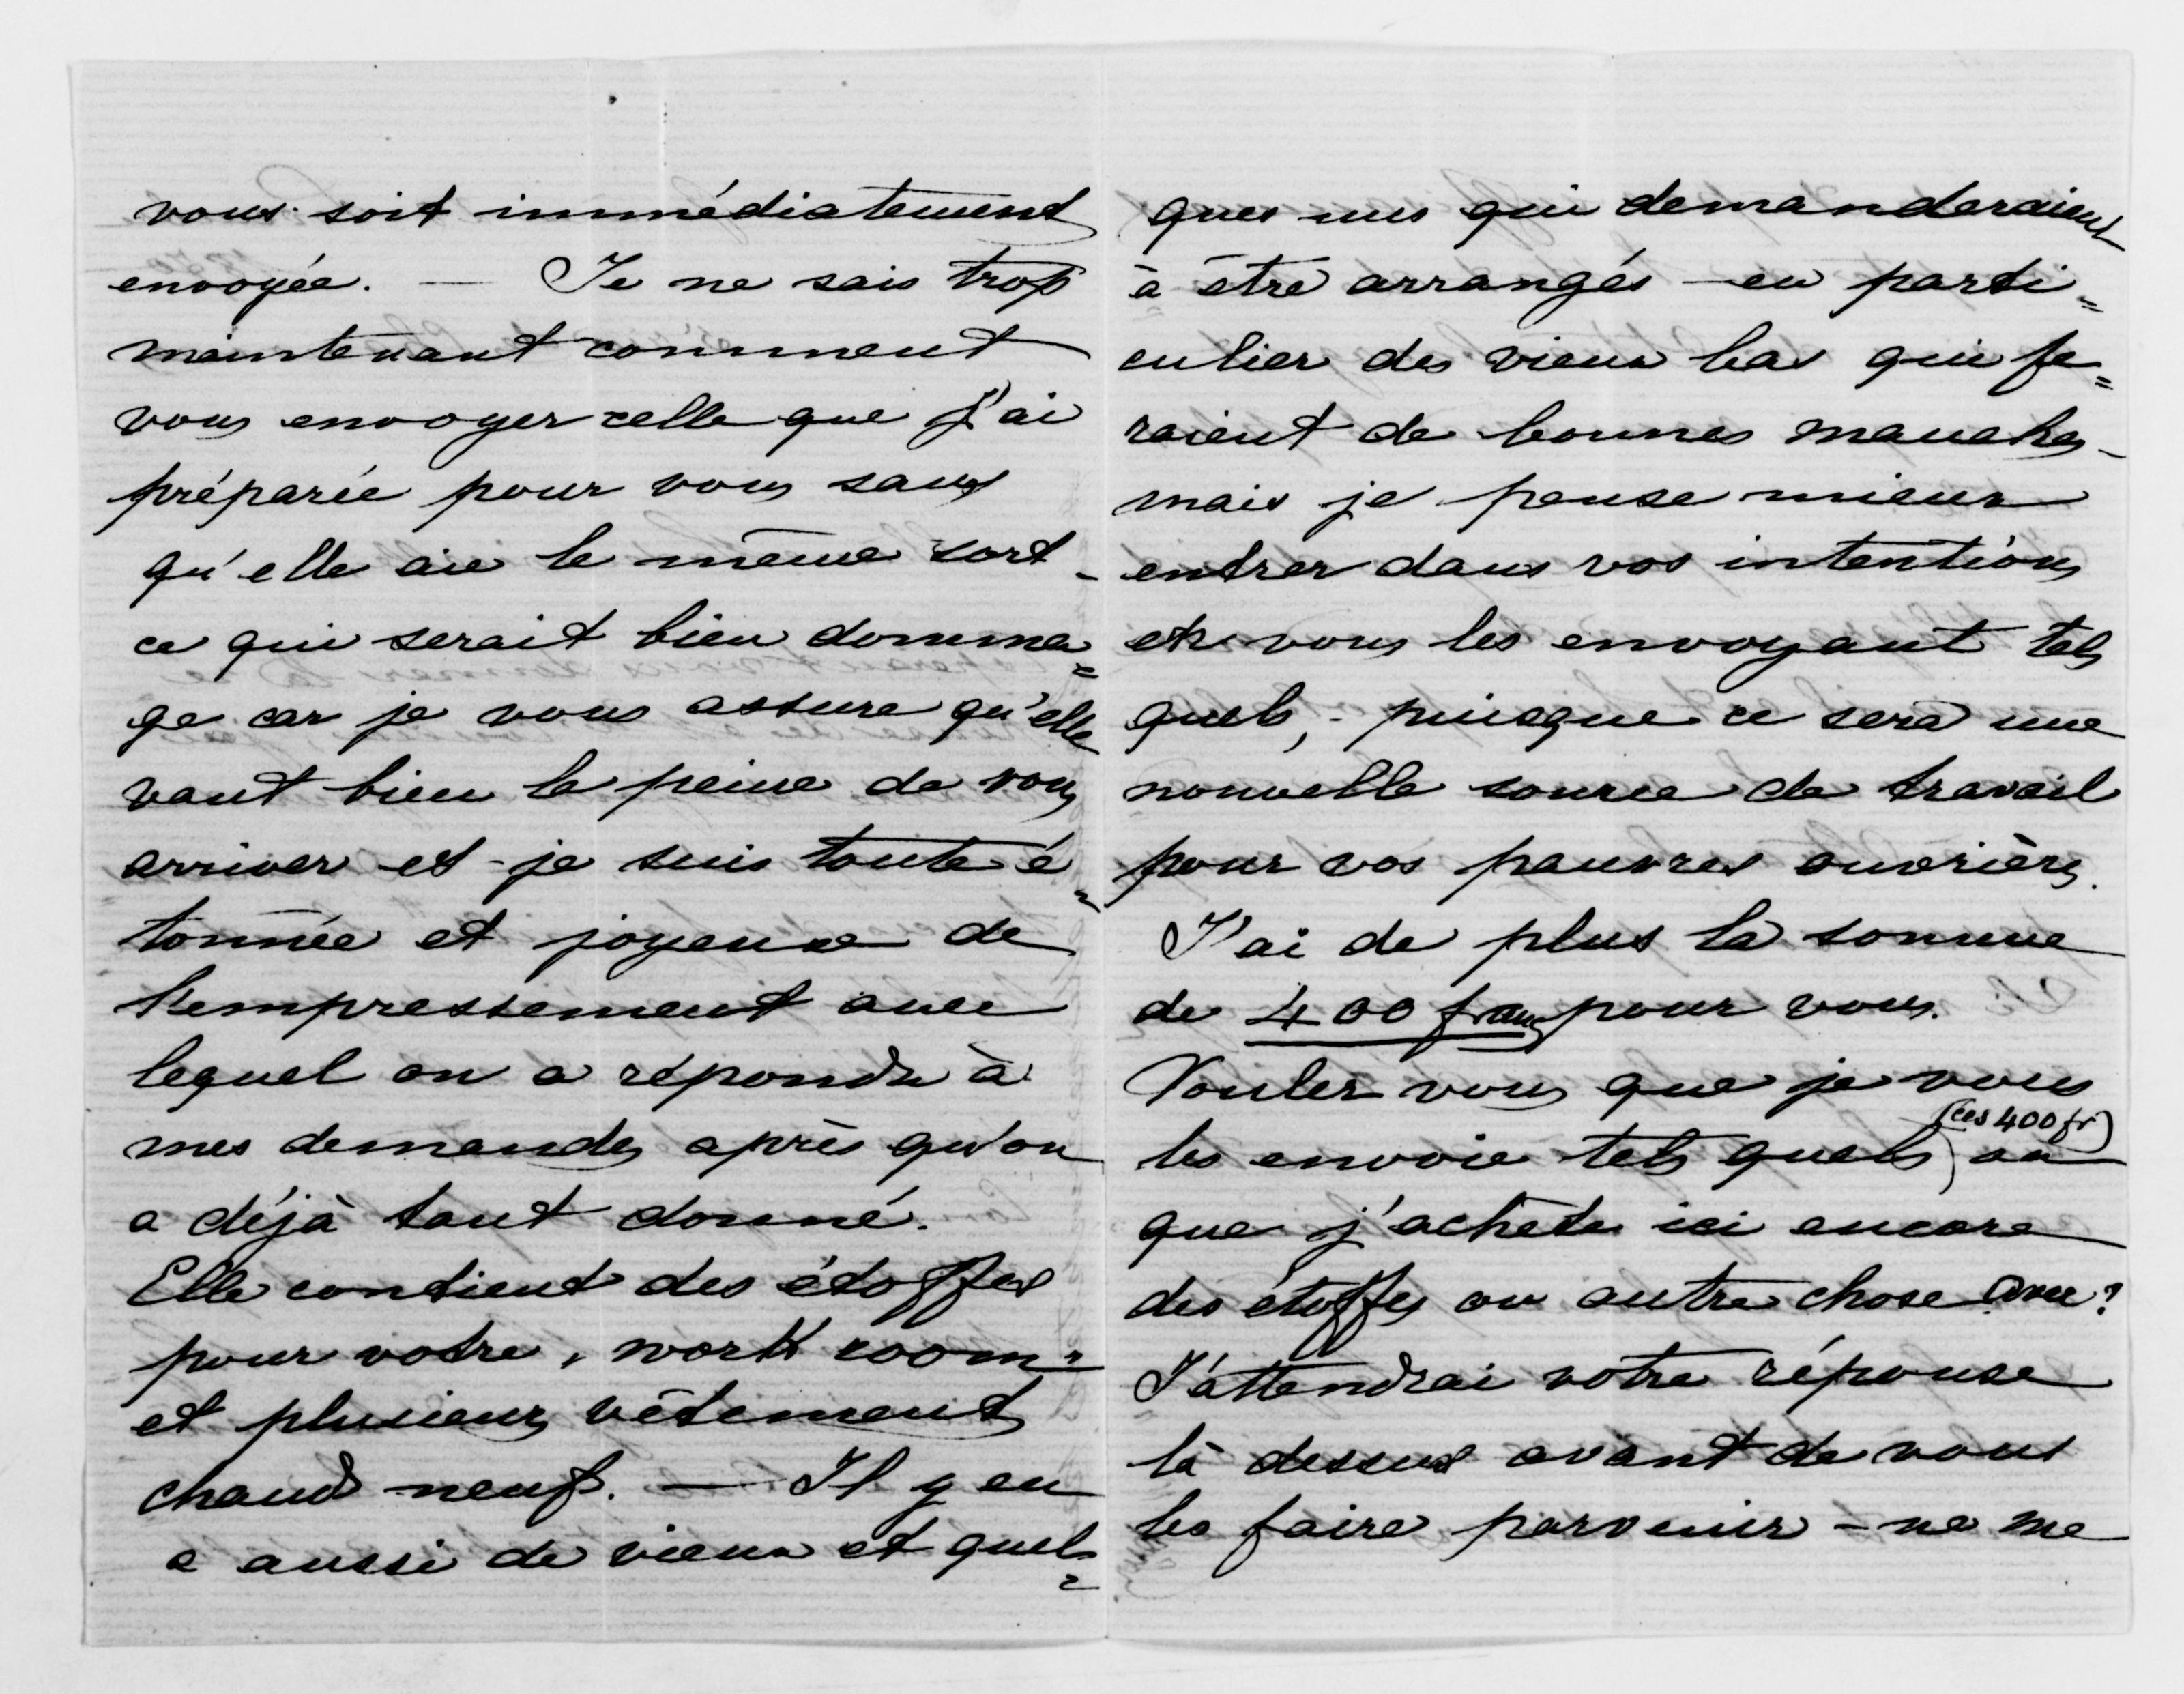 vous soit immédiatement
envoyée. — Je ne sais trop
maintenant comment
vous envoyer celle que j'ai
préparée pour vous sans
qu'elle aie le même sort -
ce qui serait bien domma=
ge car je vous assure qu'elle
vaut bien la peine de vous
arriver et - je suis toute é=
tonnée et joyeuse de
l'empressement avec
lequel on a répondu à
mes demandes après qu'on
a déjà tant donné.
Elle contient des étoffes
pour votre "work room"
et plusieurs vêtements
chauds neufs. — Il y en
a aussi de vieux et quel=
ques uns qui demanderaient
à être arrangés - en parti=
culier des vieux bas qui fe=
raient de bonnes manches -
mais je pense mieux
entrer dans vos intentions
en vous les envoyant tels
quels, - puisque ce sera une
nouvelle source de travail
pour vos pauvres ouvrières.
J'ai de plus la somme
de 400 francs pour vous.
Voulez vous que je vous
les envoie tels quels (ces 400 fr) ou
que j'achète ici encore
des étoffes ou autre chose avec?
J'attendrai votre réponse
là dessus avant de vous
les faire parvenir - ne me